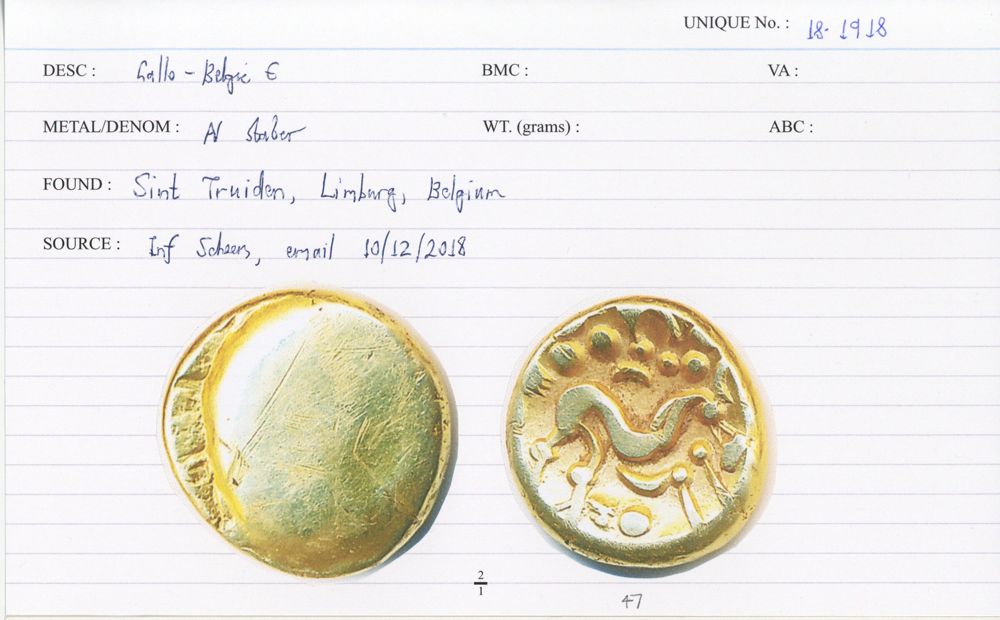 UNIQUE No. : 18-1918
DESC : Gallo-Belgic E BMC : VA :
METAL/DENOM : AV stater WT. (grams) : ABC :
FOUND : Sint Truiden, Limburg, Belgium
SOURCE : Inf Scheers, email 10/12/2018
2
1
47